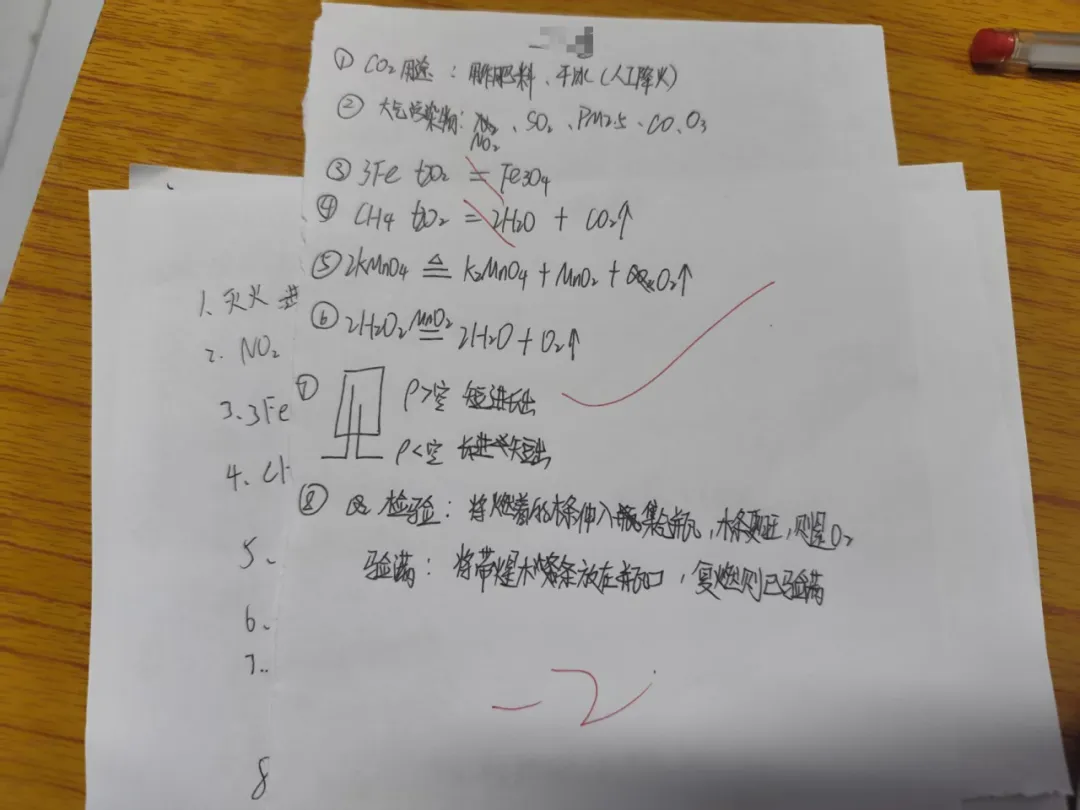 ① CO2用途：用作肥料、干冰（人工降火）
② 大气污染物：NO2、SO2、PM2.5、CO、O3
③ 3Fe + 2O2 = Fe3O4
④ CH4 + 2O2 = 2H2O + CO2↑
⑤ 2KMnO4 ≜ K2MnO4 + MnO2 + O2↑
⑥ 2H2O2 MnO2 = 2H2O + O2↑
⑦ ρ>空 短进长出
ρ<空 长进短出
⑧ O2 检验：将燃着的木条伸入集气瓶，木条更旺，则是O2
验满：将带火星木条放在瓶口，复燃则已验满
-2
1. 灭火
2. NO2
3. 3Fe
4. CH
5.
6.
7.
8